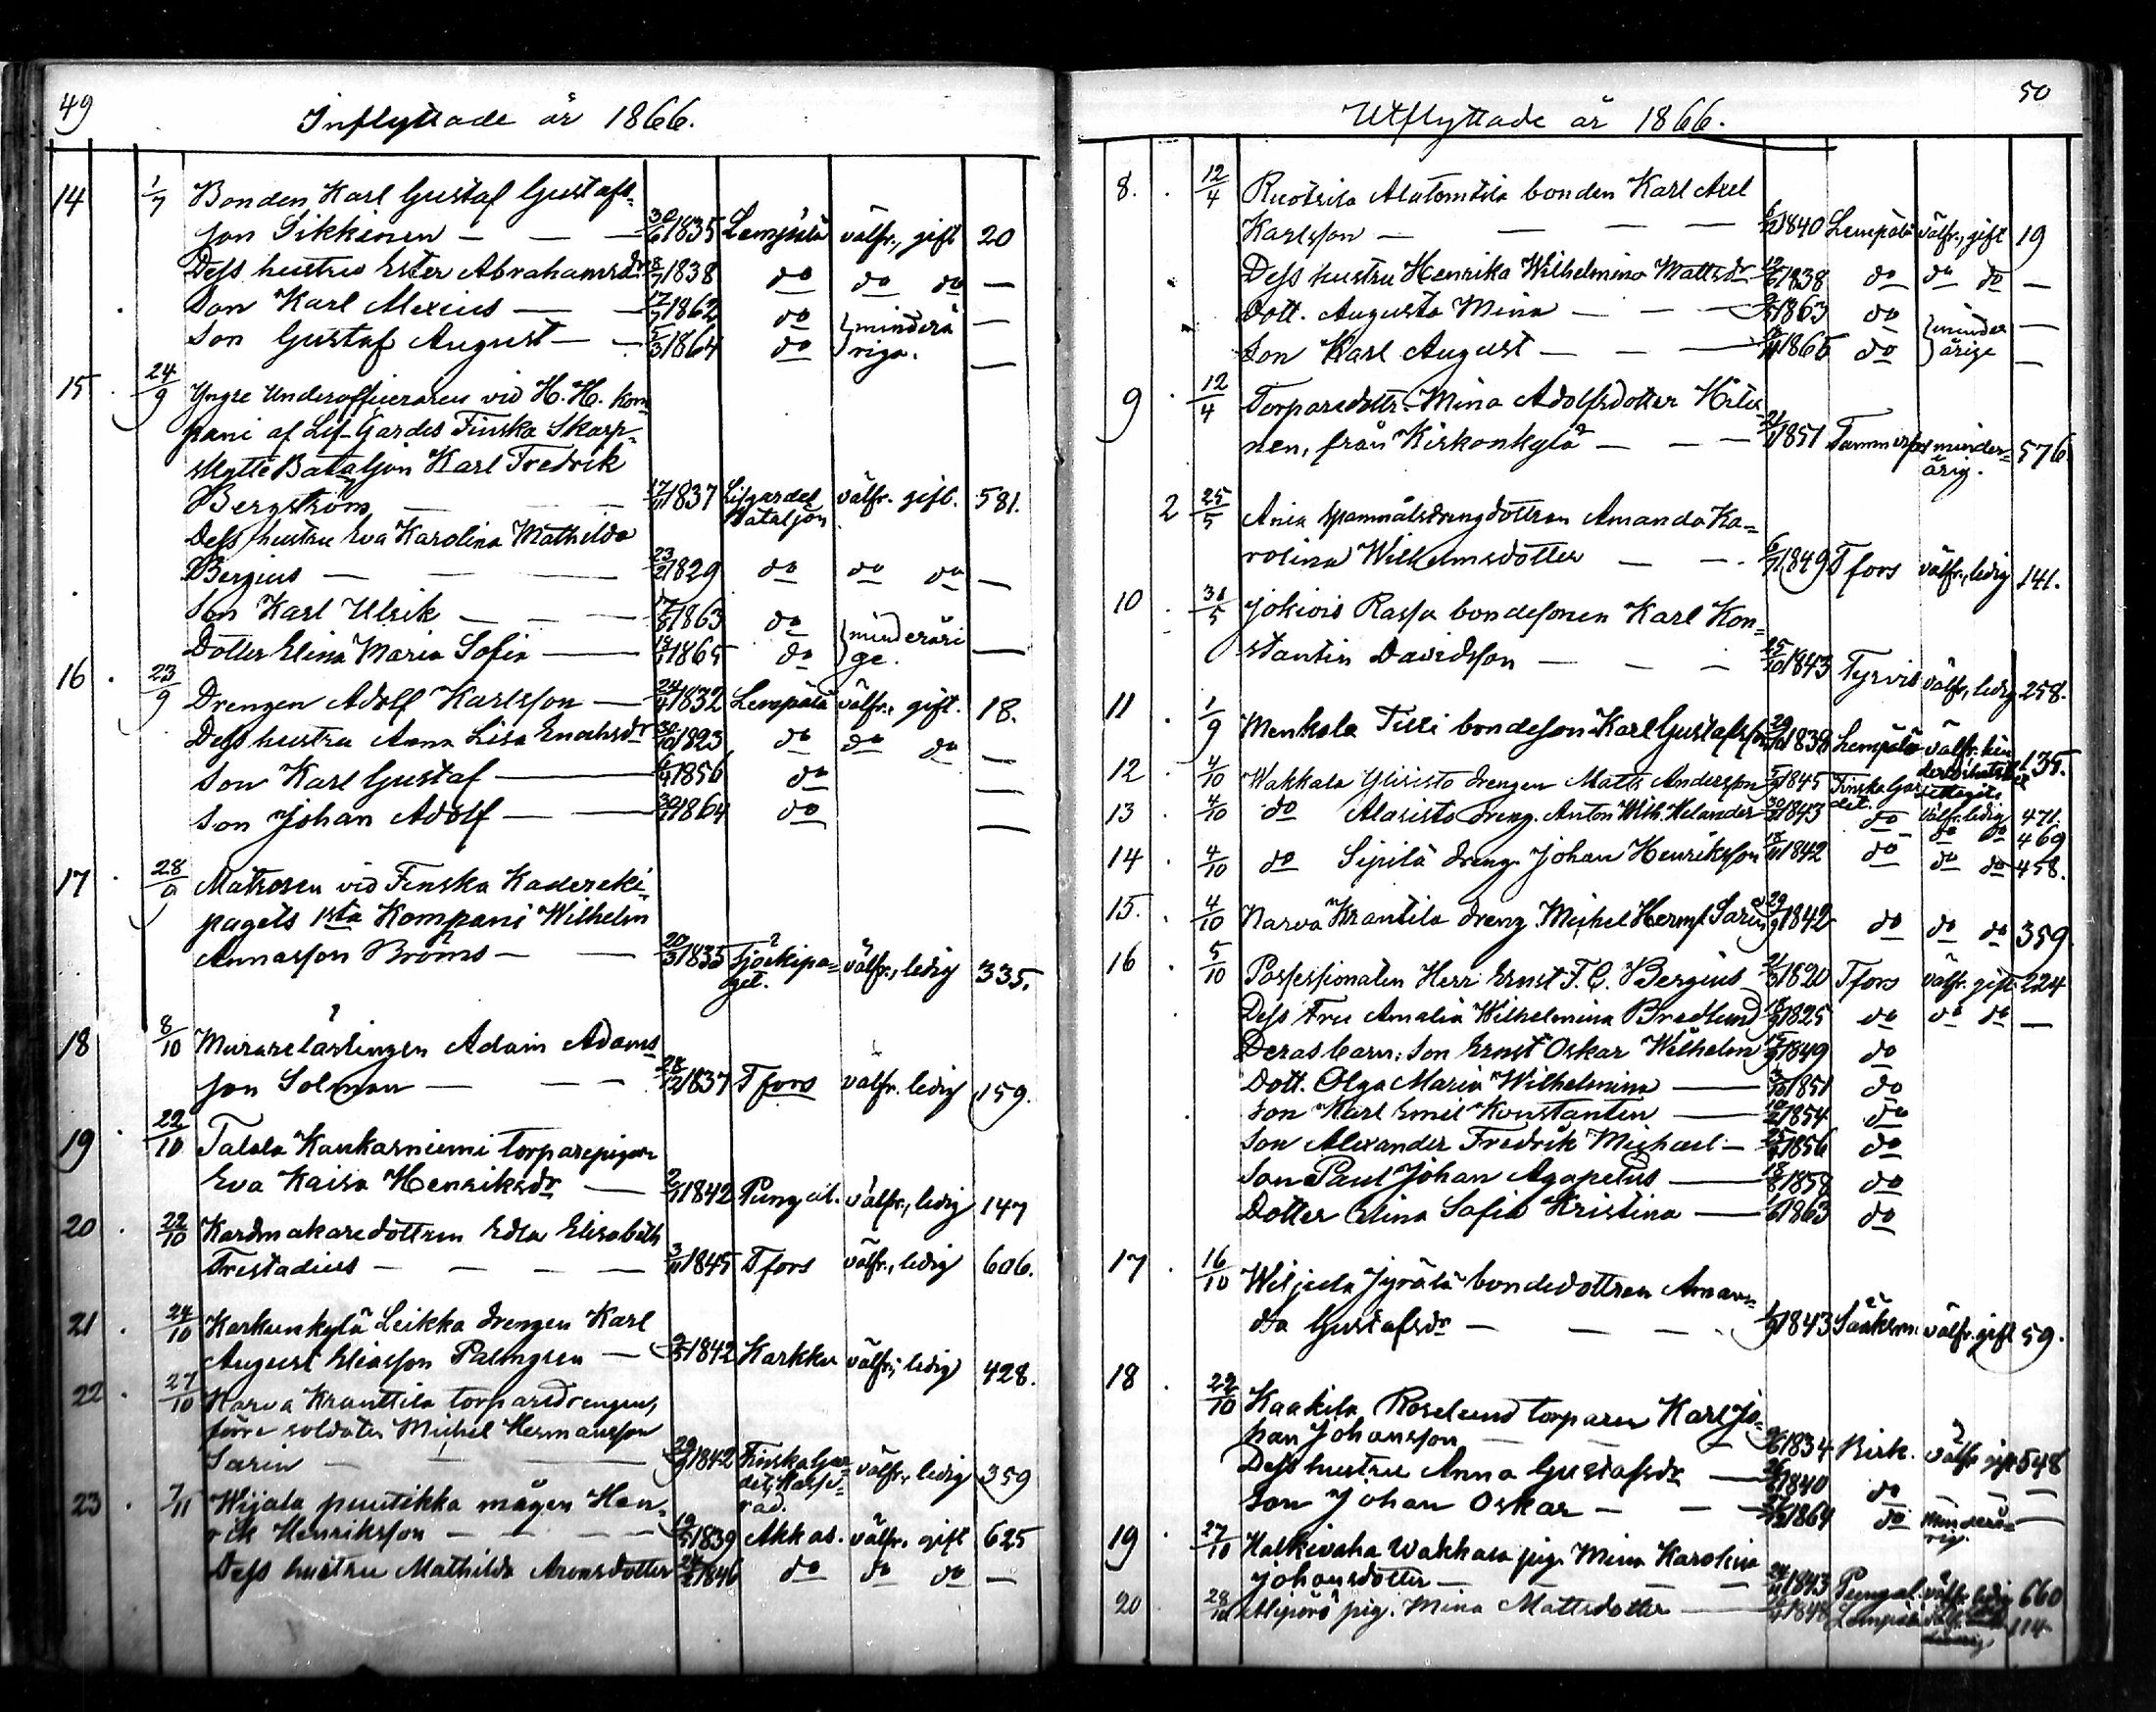 49
Inflyttade år 1866.
14 1/7 Bonden Karl Gustaf Gustafs-
son Sikkinen — — — 30/6 1835 Lempälä välfr., gift 20
Dess hustru Ester Abrahamsdr 8/7 1838 do do do —
Son Karl Alexius — — 17/7 1862 do minderå —
Son Gustaf August — — 5/3 1864 do riga. —
15 24/9 Yngre Underofficeraren vid H. H. kom-
pani af Lif-Gardes Finska Skarp-
skytte Bataljon Karl Fredrik
Bergström — — 17/11 1837 Lifgardes Bataljon välfr. gift. 581.
Dess hustru Eva Karolina Mathilda
Bergius — — — 23/2 1829 do do do —
Son Karl Ulrik — — — 1863 do minderåri —
Dotter Elina Maria Sofia — 1865 do ge. —
16 23/9 Drengen Adolf Karlsson — 24/4 1832 Lempälä välfr., gift. 18.
Dess hustru Anna Lisa Enochsdr 30/10 1823 do do do —
Son Karl Gustaf — 1856 do —
Son Johan Adolf — — 1864 do —
17 28/9 Matrosen vid Finska Kadereki-
pagets 1sta Kompani Wilhelm
Annasson Broms — — 20/3 1835 Sjöekipa-
get. välfr., ledig 335.
18 8/10 Murarelärlingen Adam Adams
son Solman — — — 28/12 1837 Tfors välfr. ledig 159.
19 22/10 Talala Kaukarniemi torparepigan
Eva Kaisa Henriksdr — 1842 Pungal. välfr., ledig 147
20 22/10 Kardmakaredottren Edla Elisabeth
Frestadius — — — — 3/11 1845 Tfors välfr., ledig 606.
21 24/10 Karkunkylä Leikka drengen Karl
August Eliasson Palmgren — 1842 Karkku välfr., ledig 428.
22 27/10 Narva Kranttila torparedrengen,
förre soldaten Michel Hermansson
Sarin — — — 29/9 1842 Finska Gar-
det, välfr., ledig 359
23 7/11 Wijala puutikka mågen Hen-
rik Henriksson — — — — 1839 Akkas. välfr., gift 625
Dess hustru Mathilda Aronsdotter 1846 do do do —
50
Utflyttade år 1866.
8. 12/4 Ruotsila Alatomtila bonden Karl Axel
Karlsson — — — — 1840 Lempälä välfr., gift 19
Dess hustru Henrika Wilhelmina Mattsdr 1838 do do do —
Dott. Augusta Mina — — — 1863 do minder —
Son Karl August — — — 1865 do årige —
9 12/4 Torparedottr. Mina Adolfsdotter
nen, från Kirkonkylä — — — 21/1 1851 Tammerfors minder-
årig. 576.
2 25/5 Ania spannmålsdrengdottren Amanda Ka-
rolina Wilhelmsdotter — — 1849 Tfors välfr., ledig 141.
10 31/5 Jokiois Rassa bondesonen Karl Kon-
stantin Davidsson — — — 25/10 1843 Tyrvis välfr., ledig 258.
11 1/9 Menkala Tilli bondeson Karl Gustafsson 1838 Lempälä välfr. 135.
12 4/10 Wakkala Ylisisto drengen Matts Andersson 1845 Finska Gar-
det. välfr. ledig 471.
13 4/10 do Alasisto dreng. Anton Wilh. Helander 30/ 1843 do do do 469
14 4/10 do Sipilä dreng. Johan Henriksson 1842 do do do 458.
15. 4/10 Narva Krantila dreng. Michel Hermss. Sarin 29/9 1842 do do do 359.
16 5/10 Possessionaten Herr Ernst F. C. Bergius 21/ 1820 Tfors välfr. gift 224
Dess Fru Amalia Wilhelmina Bredlund 1825 do do do —
Deras barn: Son Ernst Oskar Wilhelm 1849 do
Dott. Olga Maria Wilhelmina — 1851 do
Son Karl Emil Konstantin — 1854 do
Son Alexander Fredrik Michael — 1856 do
Son Paul Johan Agapetus — 1858 do
Dotter Elina Sofia Kristina — 1863 do
17 16/10 Wiljula Jyrälä bondedottren Aman-
da Gustafsdr — — — 1843 Sääksm. välfr. gift 59.
18 22/10 Kaakila Roselund torparen Karl Jo-
han Johansson — — — 1834 Birk. välfr. gift 548
Dess hustru Anna Gustafsdr — 1840 do — — —
Son Johan Oskar — — — 1864 do minderå-
rig. —
19 27/10 Halkivaha Wakkala pig. Mina Karolina
Johansdotter — — 1843 Pungal. välfr. ledig 660
20 28/10 pig. Mina Mattsdotter — 1848 Lempälä 114.